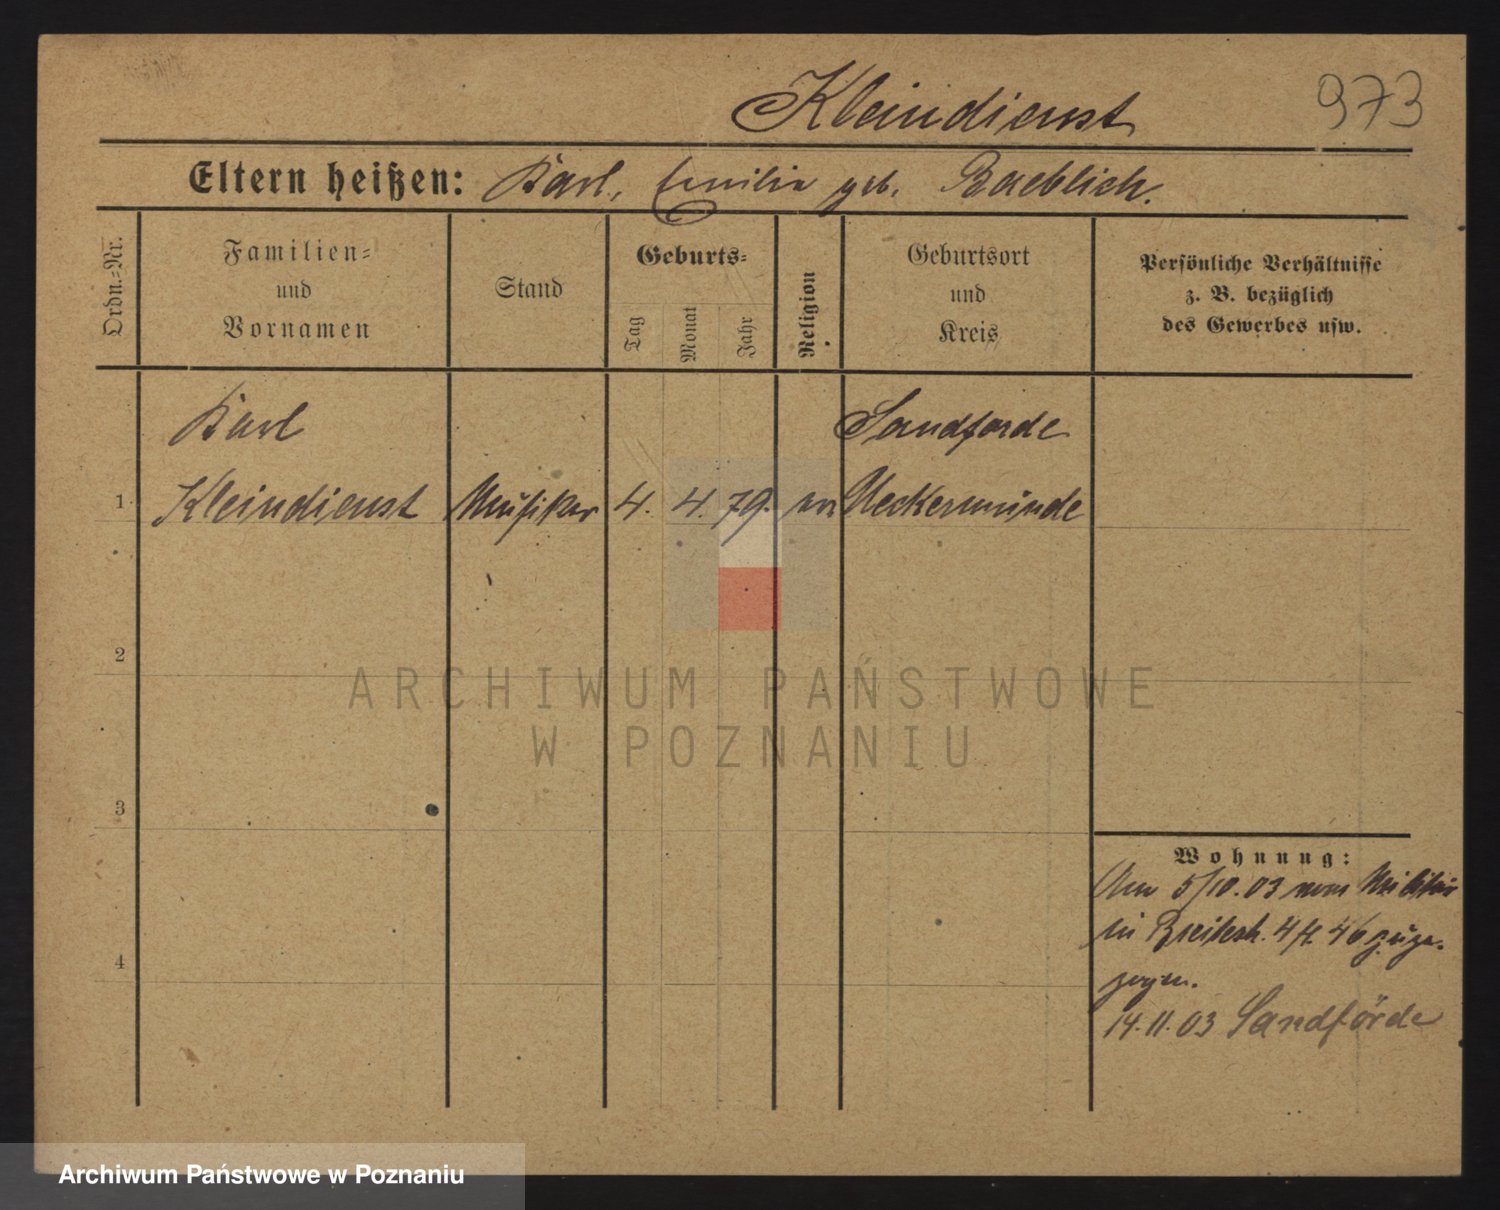 Kleindienst
973
Eltern heißen: Karl, Emilie geb. Raeblich.
Ordn.=Nr.
Familien=
und
Vornamen
Stand
Geburts=
Tag
Monat
Jahr
Religion
Geburtsort
und
Kreis
Persönliche Verhältnisse
z. B. bezüglich
des Gewerbes usw.
Karl Sandförde
1 Kleindienst Musiker 4. 4. 79. ev Ueckermünde
2
3
4
Wohnung:
Am 5/10.03 vom Militär
in Breitestr. 4 46 zuge-
zogen.
14.11.03 Sandförde
ARCHIWUM PAŃSTWOWE
W POZNANIU
Archiwum Państwowe w Poznaniu